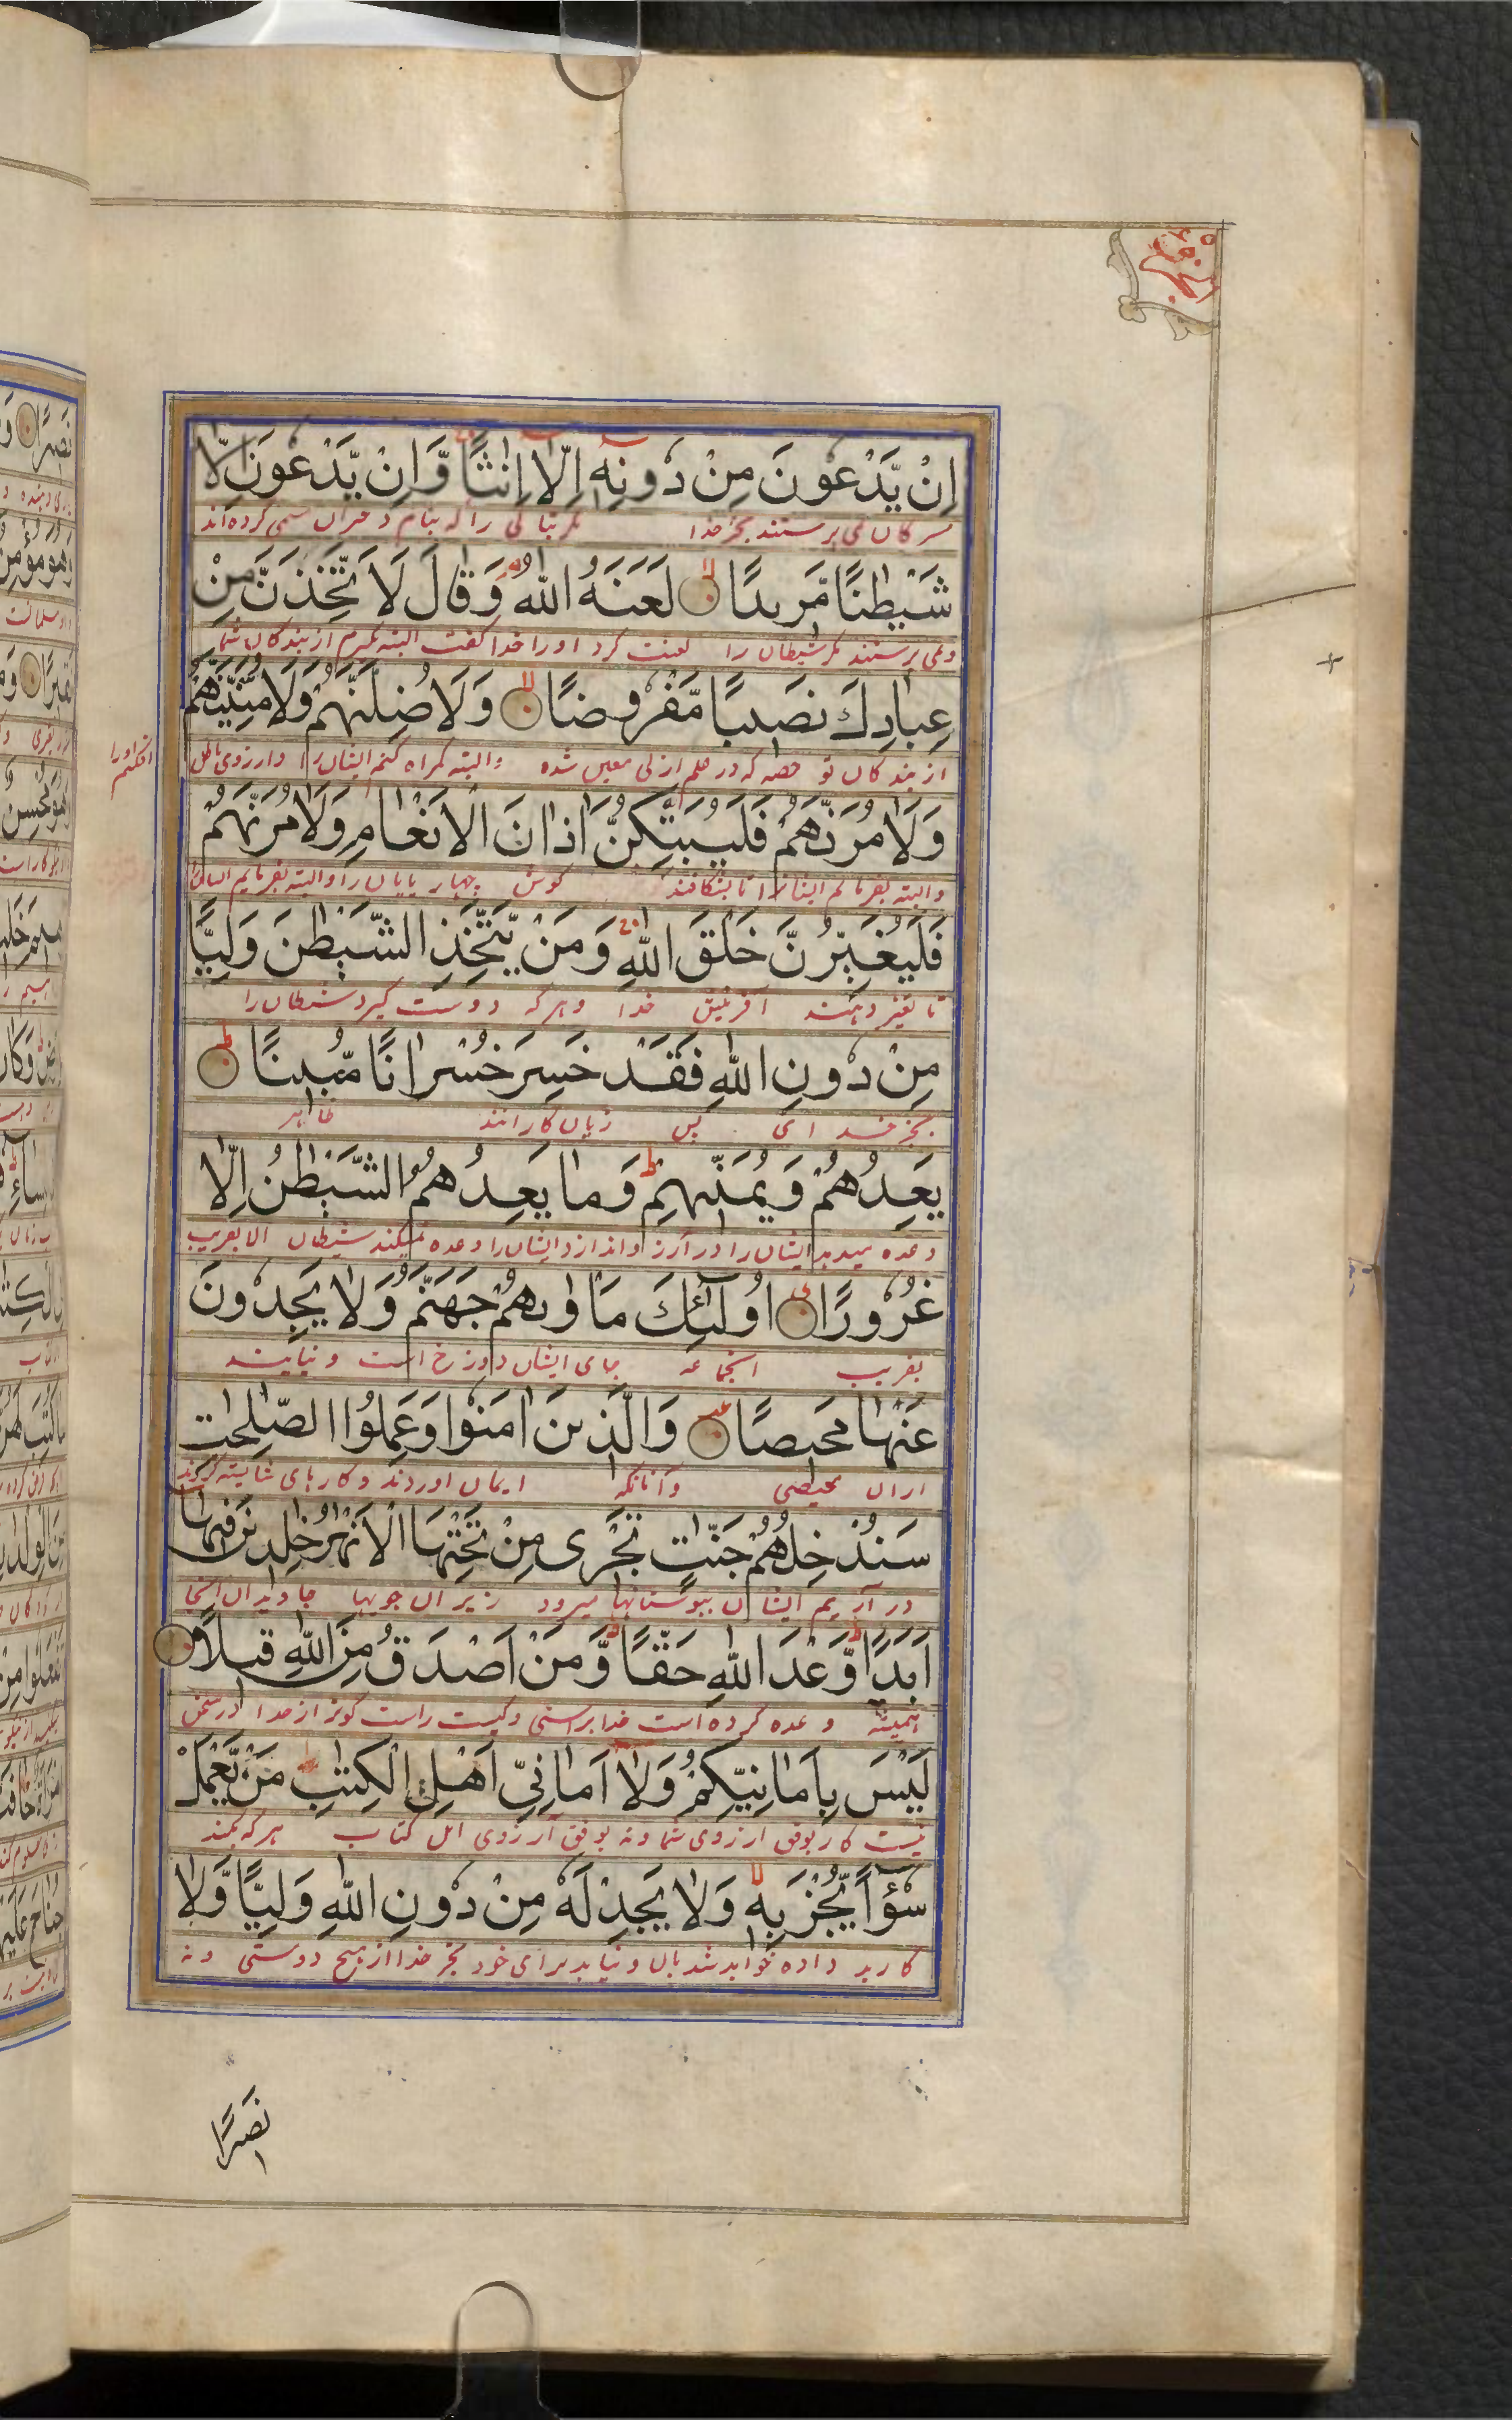 اِنْ يَّدْعُونَ مِنْ دُونِهٖ اِلَّا اِنٰثًا وَّاِنْ يَّدْعُونَ اِلَّا
می پرستند بجز خدا مگر بتانی را که بنام دختران مسمی کرده اند
شَيْطٰنًا مَّرِيدًا لَعَنَهُ اللّٰهُ وَقَالَ لَاَتَّخِذَنَّ مِنْ
ونمی پرستند مگر شیطان را لعنت کرد اورا خدا گفت البته بگیرم از بندگان شما
عِبَادِكَ نَصِيبًا مَّفْرُوضًا وَلَاُضِلَّنَّهُمْ وَلَاُمَنِّيَنَّهُمْ
از بندگان تو حصه که در علم ازلی معین شده والبته گمراه کنم ایشان را وارزوی باطل
وَلَاٰمُرَنَّهُمْ فَلَيُبَتِّكُنَّ اٰذَانَ الْاَنْعَامِ وَلَاٰمُرَنَّهُمْ
والبته بفرمایم ایشانرا تا بشکافند گوش چهار پایان را والبته بفرمایم
فَلَيُغَيِّرُنَّ خَلْقَ اللّٰهِ وَمَنْ يَّتَّخِذِ الشَّيْطٰنَ وَلِيًّا
تا تغیر دهند افرینش خدا وهرکه دوست گیرد شیطان را
مِنْ دُونِ اللّٰهِ فَقَدْ خَسِرَ خُسْرَانًا مُّبِينًا
بجز خدای پس زیان کارانند ظاهر
يَعِدُهُمْ وَيُمَنِّيهِمْ وَمَا يَعِدُهُمُ الشَّيْطٰنُ اِلَّا
وعده میدهد ایشان را در آرزو اندازد ایشان را وعده نمیکند شیطان الا بفریب
غُرُورًا اُولٰٓئِكَ مَاْوٰيهُمْ جَهَنَّمُ وَلَا يَجِدُونَ
بفریب انجماعه جای ایشان دوزخ است ونیابند
عَنْهَا مَحِيصًا وَالَّذِينَ اٰمَنُوا وَعَمِلُوا الصّٰلِحٰتِ
ازان محیصی وآنانکه ایمان اوردند وکارهای شایسته کردند
سَنُدْخِلُهُمْ جَنّٰتٍ تَجْرِى مِنْ تَحْتِهَا الْاَنْهٰرُ خٰلِدِينَ فِيهَا
در آریم ایشان ببوستانها میرود زیر ان جویها جاویدان انجا
اَبَدًا وَّعْدَ اللّٰهِ حَقًّا وَّمَنْ اَصْدَقُ مِنَ اللّٰهِ قِيلًا
همیشه وعده کرده است خدا براستی وکیست راست گوتر از خدا در سخن
لَيْسَ بِاَمَانِيِّكُمْ وَلَا اَمَانِيِّ اَهْلِ الْكِتٰبِ مَنْ يَّعْمَلْ
نیست کار بوفق ارزوی شما ونه بوفق آرزوی اهل کتاب هرکه بکند
سُوٓءًا يُّجْزَ بِهٖ وَلَا يَجِدْ لَهٗ مِنْ دُونِ اللّٰهِ وَلِيًّا وَّلَا
کار بد داده خواهد شد بان ونیابد برای خود بجز خدا از هیچ دوستی ونه
نَصِيرًا